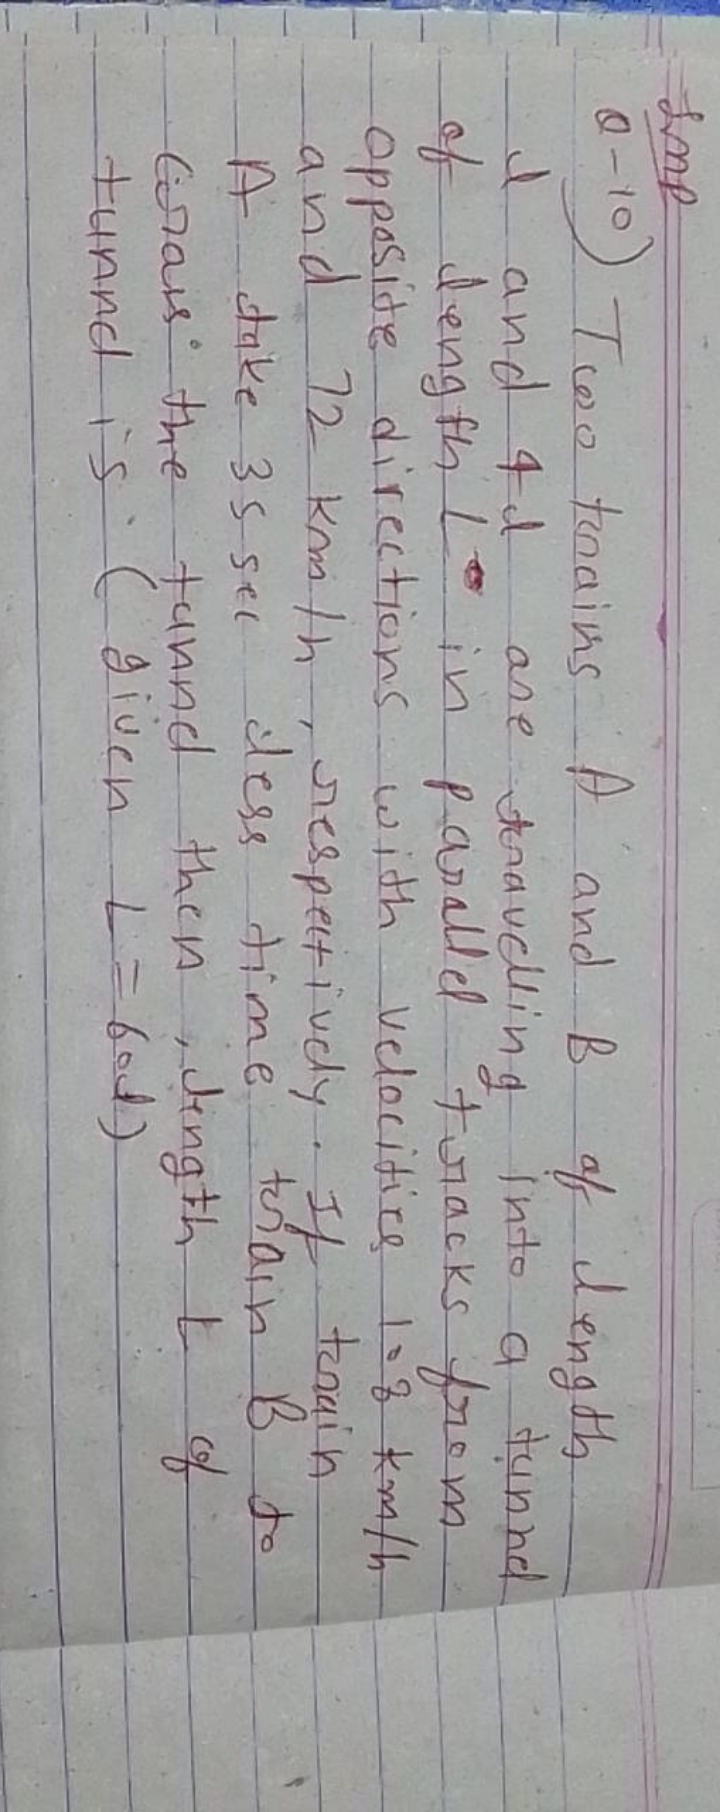 Imp
Q-10) Two trains A and B of length
l and 4l are travelling into a tunnel
of length L in parallel tracks from
opposite directions with velocities 108 km/h
and 72 km/h, respectively. If train
A take 35 sec less time train B to
cross the tunnel then, length L of
tunnel is. (given L=60l)